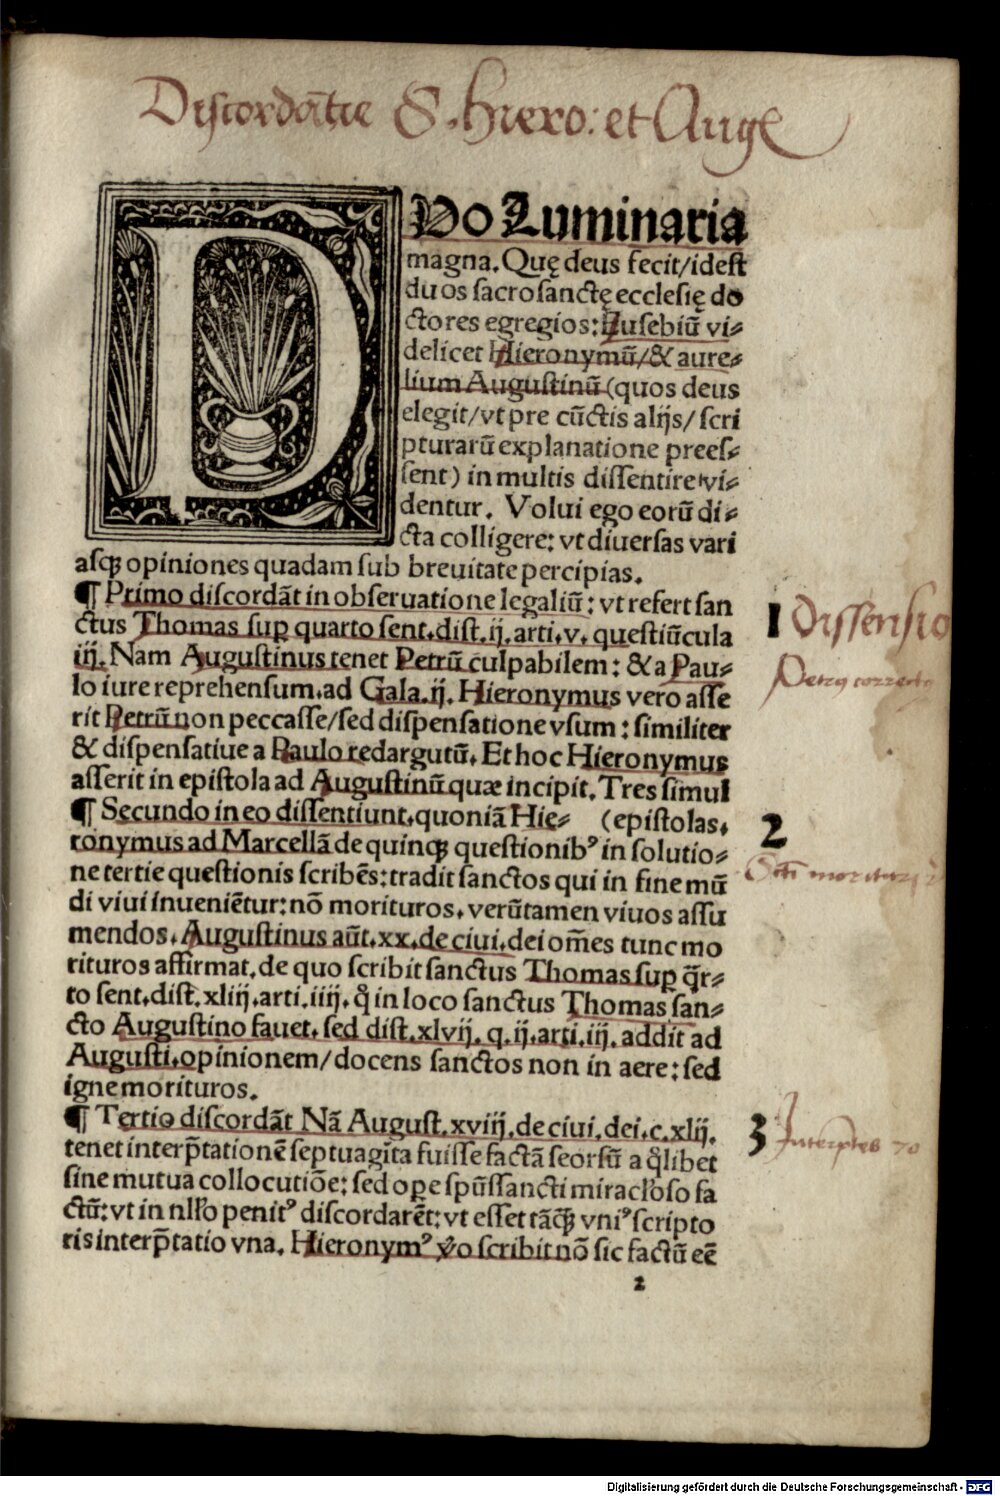 Discordātie S. Hiero: et Aug
DVo Luminaria
magna. Quę deus fecit/idest
duos sacrosanctę ecclesię do
ctores egregios: Eusebiū vi⸗
delicet Hieronymū/& aure⸗
lium Augustinū (quos deus
elegit/vt pre cūctis alijs/ scri
pturarū explanatione prees⸗
sent) in multis dissentire vi⸗
dentur. Volui ego eorū di⸗
cta colligere: vt diuersas vari
asqꝫ opiniones quadam sub breuitate percipias.
¶ Primo discordāt in obseruatione legaliū: vt refert san
ctus Thomas suꝑ quarto sent. dist. ij. arti. v. questiūcula
iij. Nam Augustinus tenet Petrū culpabilem: & a Pau⸗
lo iure reprehensum. ad Gala. ij. Hieronymus vero asse
rit Petrū non peccasse/sed dispensatione vsum: similiter
& dispensatiue a Paulo redargutū. Et hoc Hieronymus
asserit in epistola ad Augustinū quæ incipit. Tres simul
¶ Secundo in eo dissentiunt. quoniā Hie⸗ (epistolas.
ronymus ad Marcellā de quinqꝫ questionibꝰ in solutio⸗
ne tertie questionis scribēs: tradit sanctos qui in fine mū
di viui inueniētur: nō morituros. verūtamen viuos assu
mendos. Augustinus aūt. xx. de ciui. dei om̄es tunc mo
rituros affirmat. de quo scribit sanctus Thomas suꝑ q̄r⸗
to sent. dist. xliij. arti. iiij. q̊ in loco sanctus Thomas san⸗
cto Augustino fauet. sed dist. xlvij. q. ij. arti. iij. addit ad
Augusti. opinionem/docens sanctos non in aere: sed
igne morituros.
¶ Tertio discordāt Nā August. xviij. de ciui. dei. c. xlij.
tenet interp̄tationē septuagīta fuisse factā seorsū a q̊libet
sine mutua collocutiōe: sed ope spūssancti miracl'oso fa
ctū: vt in nll'o penitꝰ discordarēt: vt esset tāqꝫ vniꝰ scripto
ris interp̄tatio vna. Hieronymꝰ v̊o scribit nō sic factū eē
2
1 Dissensio
Petrꝰ correctꝰ
2
Scti morituri
3 Interp̄tes 70
Digitalisierung gefördert durch die Deutsche Forschungsgemeinschaft - DFG